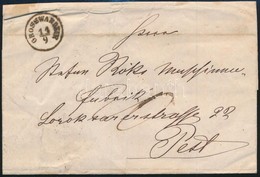 GROSSWARDEIN
13
9
Herrn
Stefan Röks Maschinen-
Fabrik
Soroksarerstrasse 22
Pest